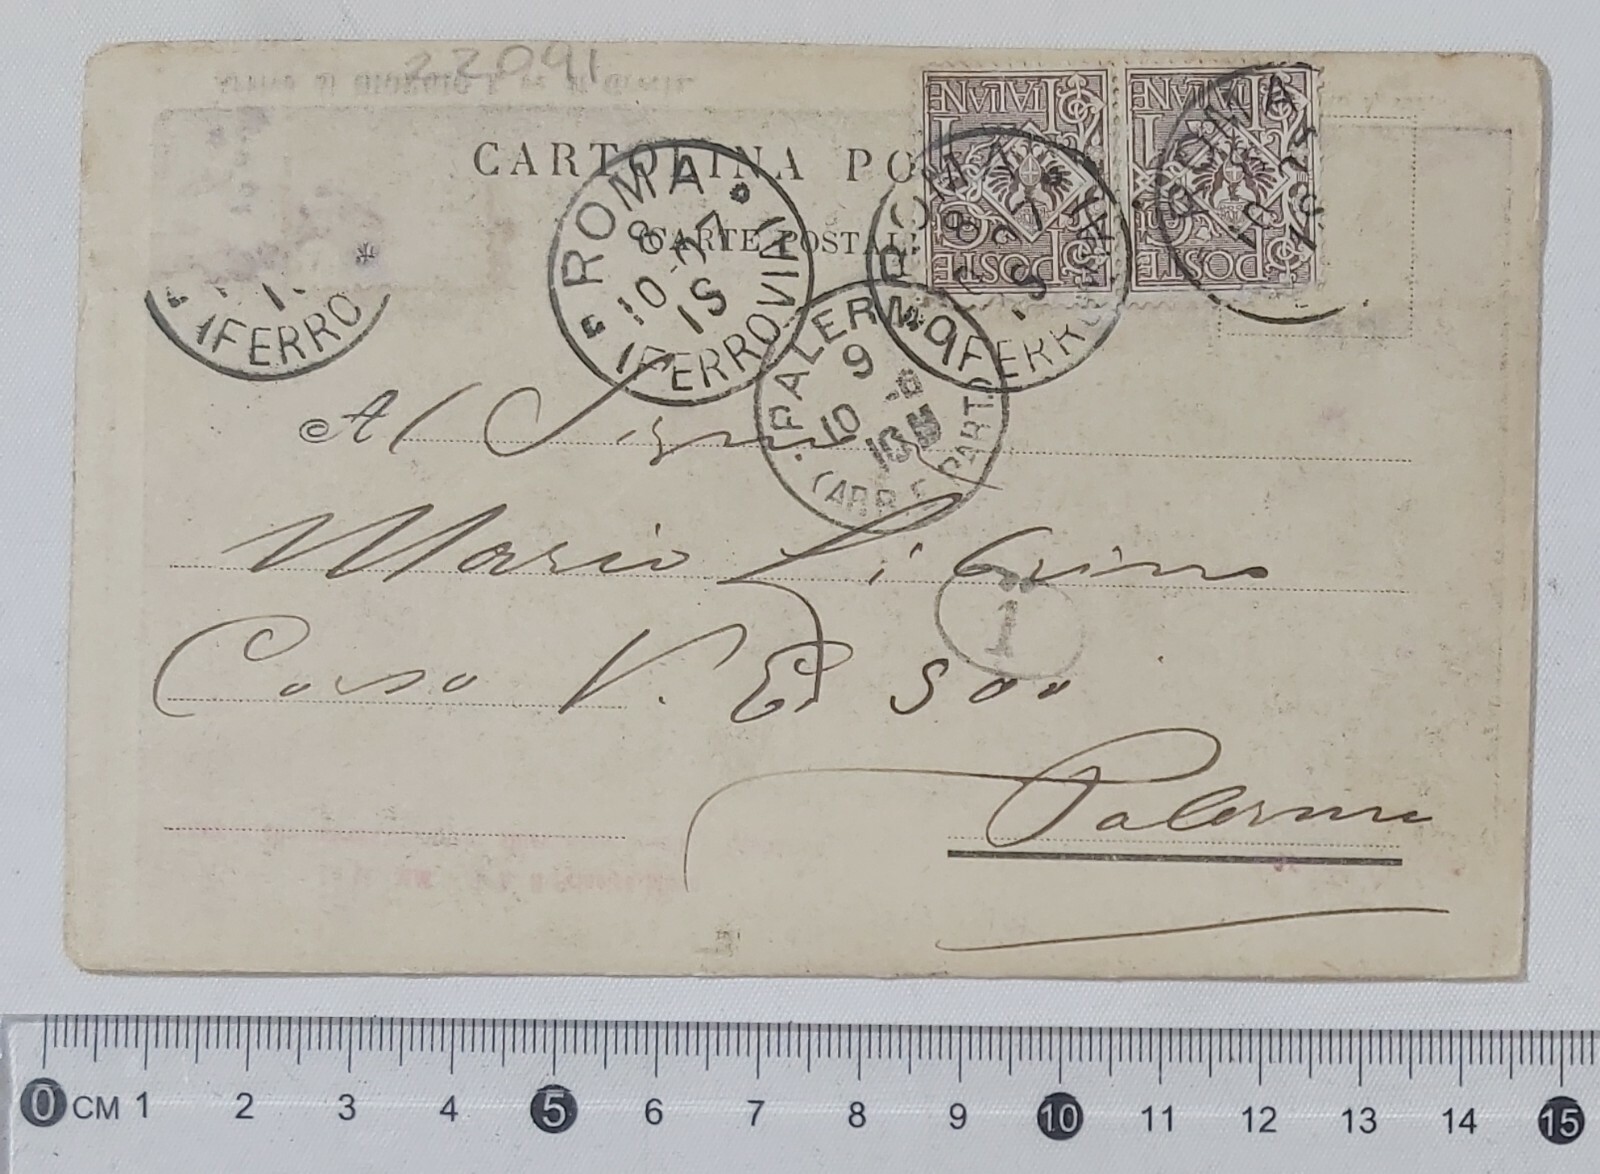 22091
CARTOLINA PO
CARTE POSTAL
POSTE ITALIANE
1
POSTE ITALIANE
1
ROMA
8
10-
1S
(FERROVIA)
ROMA
8
1S
FERRO
ROMA
(FERRO
PALERMO
9
10
CARR E PART
Al Signor
Mario Li
1
Corso V. E. 500
Palermo
0 CM 1 2 3 4 5 6 7 8 9 10 11 12 13 14 15